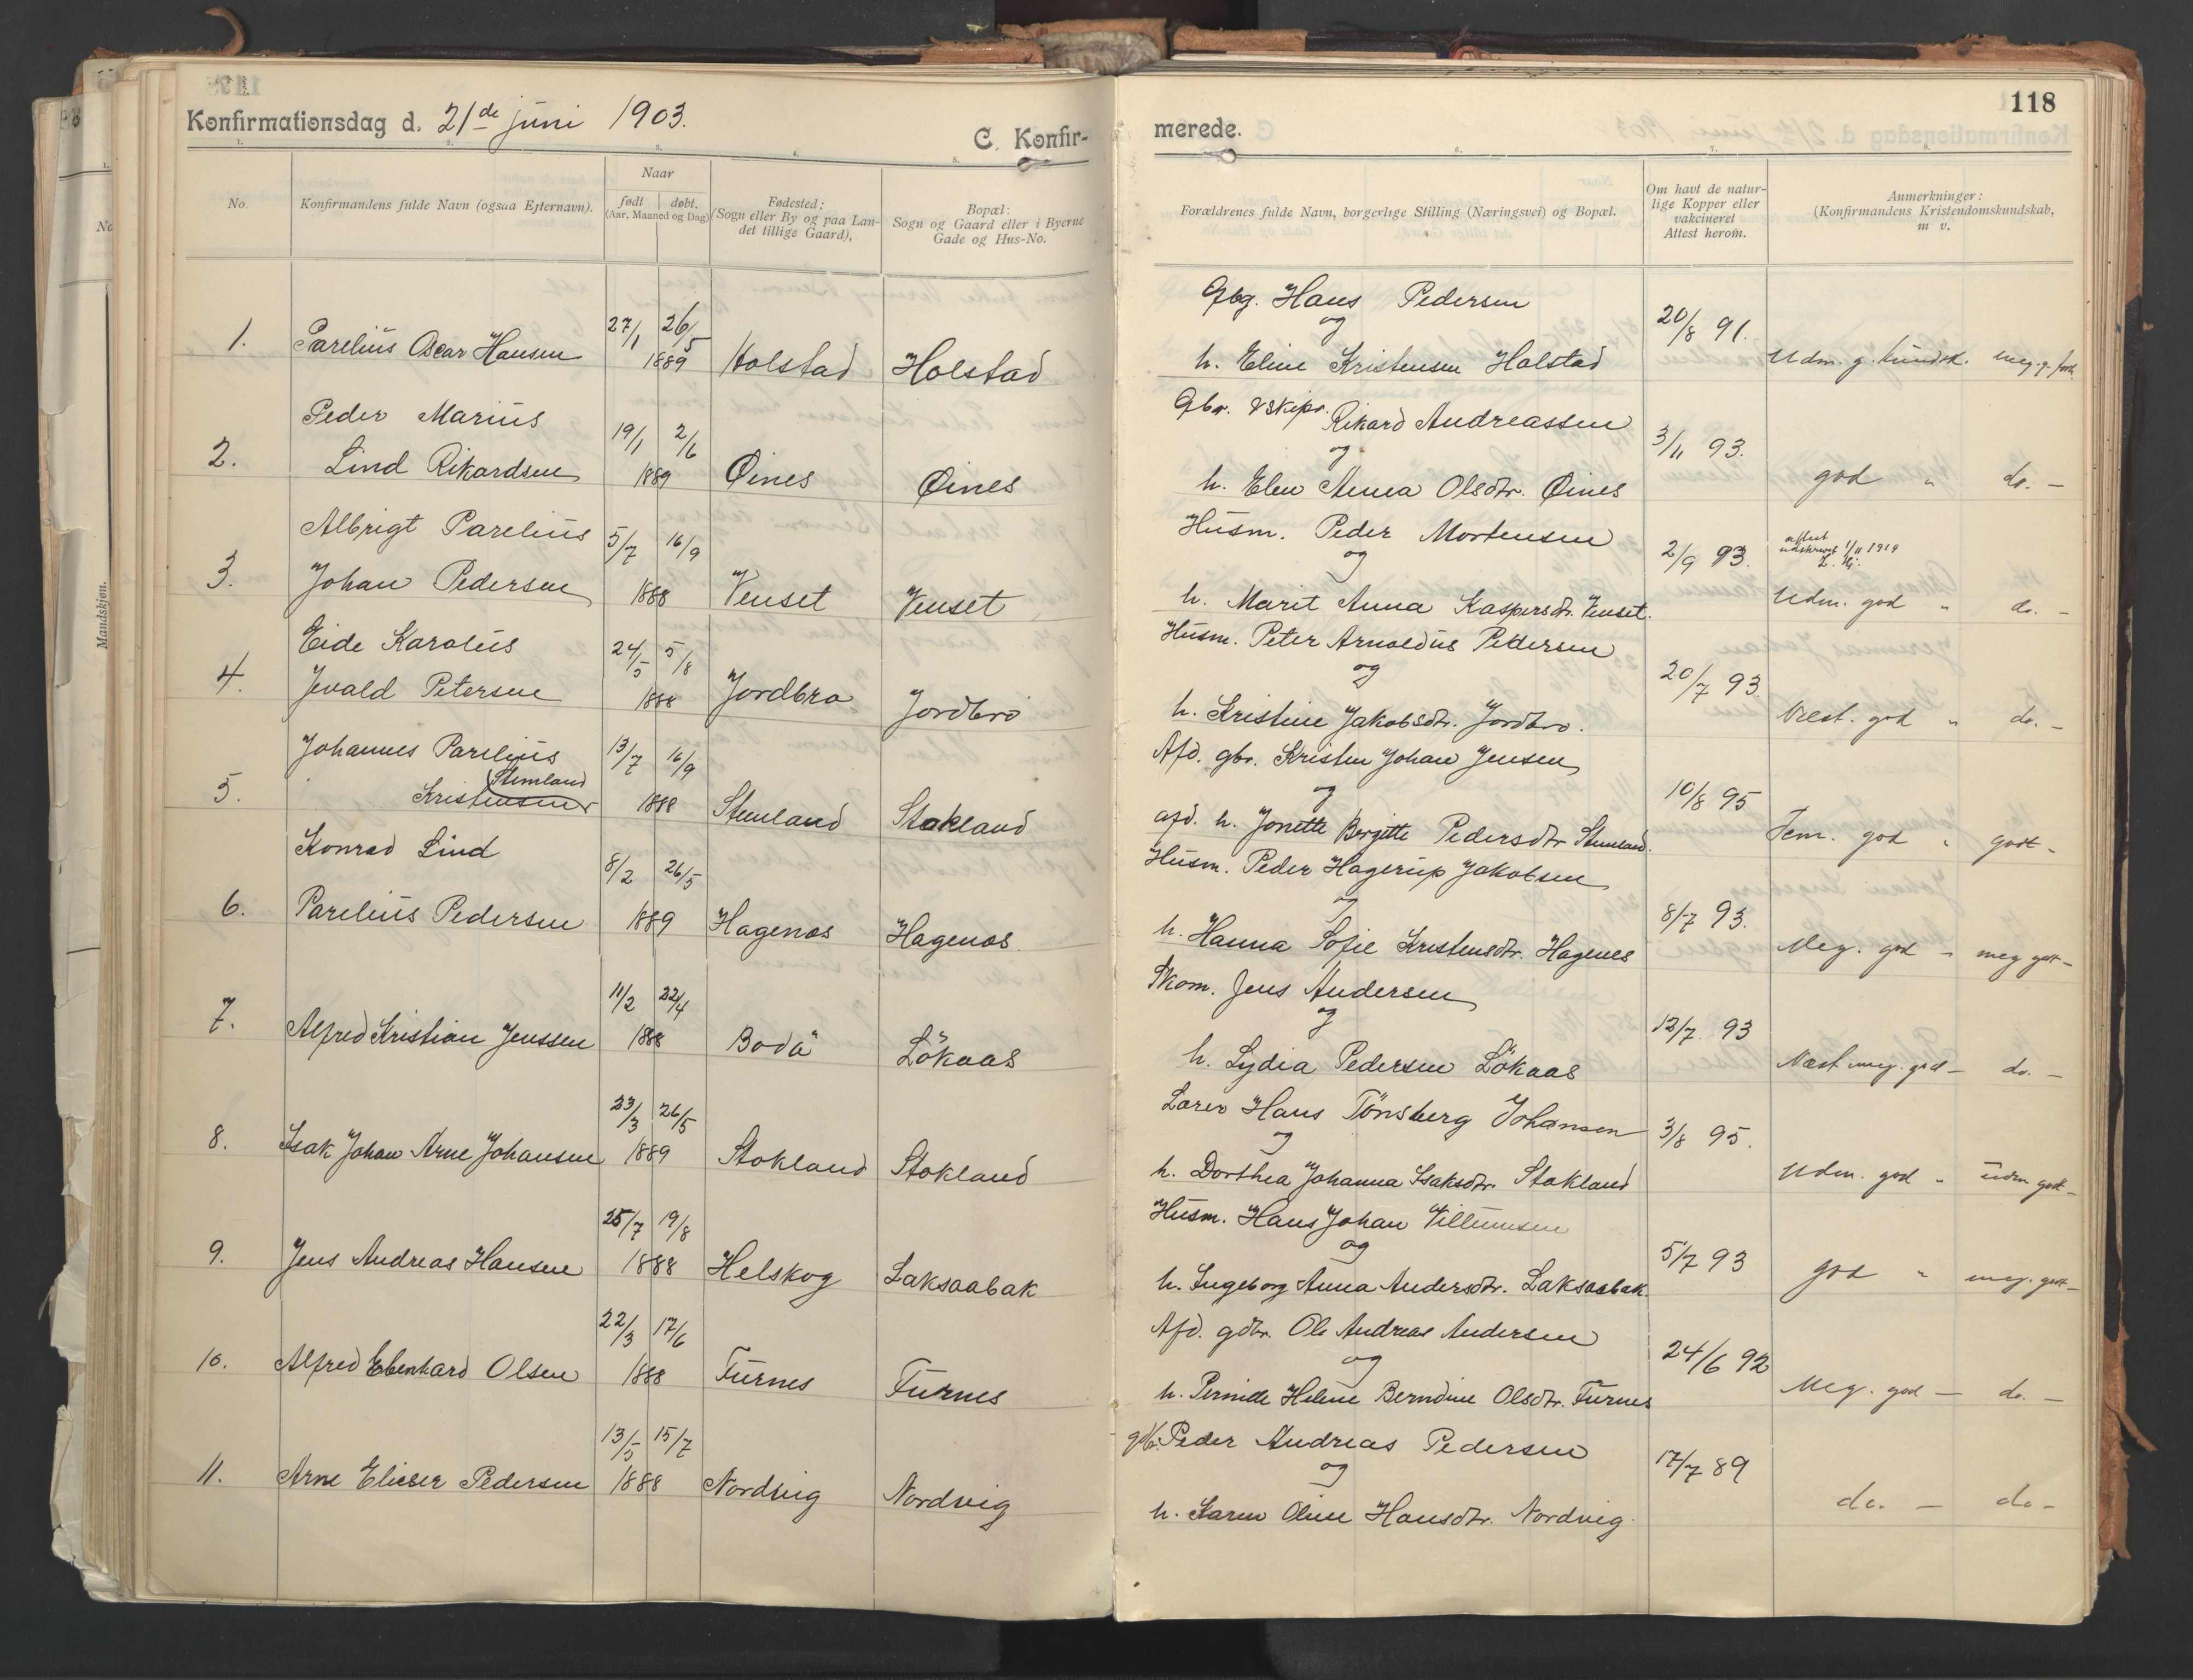 118
Konfirmationsdag d. 21de juni 1903.
C. Konfir-
merede.
1. 2. 3. 4. 5. 6. 7.
No.
Konfirmandens fulde Navn (ogsaa Efternavn).
Naar
født døbt.
(Aar, Maaned og Dag)
Fødested:
(Sogn eller By og paa Lan-
det tillige Gaard),
Bopæl:
Sogn og Gaard eller i Byerne
Gade og Hus-No.
Forældrenes fulde Navn, borgerlige Stilling (Næringsvei) og Bopæl.
Om havt de natur-
lige Kopper eller
vakcineret
Attest herom.
Anmerkninger:
(Konfirmandens Kristendomskundskab,
m v.
Mandskjøn.
1. Parelius Oscar Hansen 27/1 26/5 1889 Holstad Holstad
Gbg. Hans Pedersen
og
h. Eline Kristensen Holstad
20/8 91.
Udm. g. kundsk. meg. g.
2. Peder Marius
Lind Rikardsen 19/1 2/6 1889 Øines Øines
Gbr. Skipr. Rikard Andreassen
og
h. Elen Anna Olsdtr. Øines
3/11 93.
god " do. —
3. Albrigt Parelius
Johan Pedersen 5/7 16/9 1888 Venset Venset
Husm. Peder Mortensen
og
h. Marit Anna Kaspersdtr. Venset.
2/9 93.
attest
udskrevet 1/11 1919
Udm. god " do. —
4. Eide Karolus
Jevald Petersen 24/5 5/8 1888 Jordbro Jordbro
Husm. Peter Arnoldus Pedersen
og
h. Kristine Jakobsdtr. Jordbro.
20/7 93.
Næst. god " do. —
5. Johannes Parelius
Stemland
Kristensen 13/7 16/9 1888 Stemland Stokland
Afd. gbr. Kristen Johan Jensen
og
afd. h. Jonette Bergitte Pedersdtr Stemland.
10/8 95
Tem. god " godt —
6. Konrad Lind
Parelius Pedersen 8/2 26/5 1889 Hagenæs Hagenæs.
Husm. Peder Hagerup Jakobsen
og
h. Hanna Sofie Kristensdtr. Hagenes
8/7 93.
Meg. god — meg godt —
7. Alfred Kristian Jenssen 11/2 22/4 1888 Bodö Lökaas
Skom. Jens Andersen
og
h. Lydia Pedersen Lökaas
12/7 93
Næst meg. god — do. —
8. Isak Johan Arne Johansen 23/3 26/5 1889 Stokland Stokland
Lærer Hans Tönsberg Johansen
og
h. Dorthea Johanna Isaksdtr. Stokland
3/8 95.
Udm. god " udm godt —
9. Jens Andreas Hansen 25/7 19/8 1888 Helskog Laksaabak
Husm. Hans Johan Villumsen
og
h. Ingeborg Anna Andersdtr. Laksaabak.
5/7 93
god " meg. godt —
10. Alfred Ebenhard Olsen 22/3 17/6 1888 Furnes Furnes
Afd. gdbr. Ole Andreas Andersen
og
h. Pernide Helene Berndine Olsdtr. Furnes
24/6 92
Meg. god — do. —
11. Arne Elieser Pedersen 13/5 15/7 1888 Nordvig Nordvig
gdb. Peder Andreas Pedersen
og
h. Karen Oline Hansdtr. Nordvig.
17/7 89
do. — do —